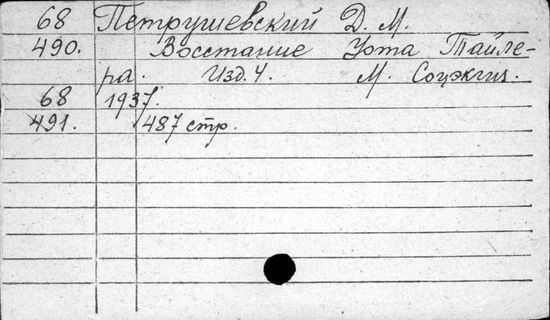 68 Петрушевский Д. М.
490. Восстание Уота Тайле-
ра. Изд. 4. М. Соцэкгиз.
68 1937.
491. 487 стр.